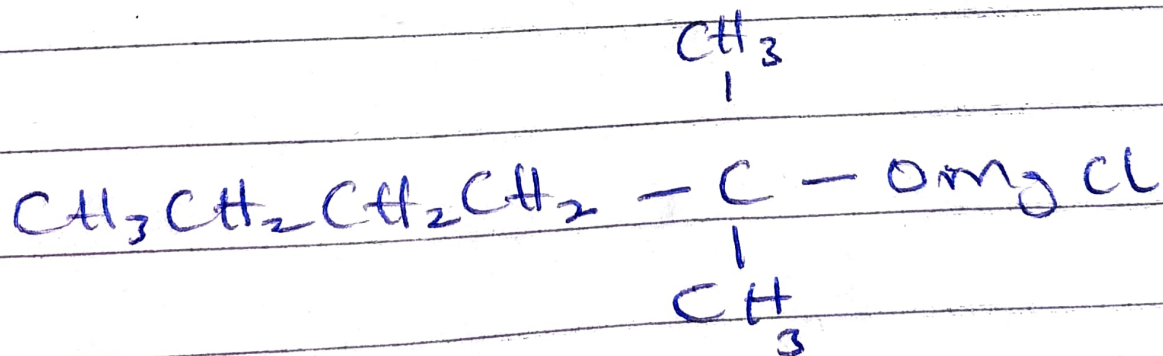 CH3
CH3CH2CH2CH2 - C - OMgCl
CH3